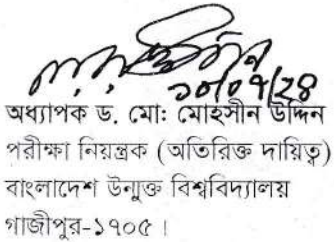 ১০/০৭/২৪
অধ্যাপক ড. মো: মোহসীন উদ্দিন
পরীক্ষা নিয়ন্ত্রক (অতিরিক্ত দায়িত্ব)
বাংলাদেশ উন্মুক্ত বিশ্ববিদ্যালয়
গাজীপুর-১৭০৫।